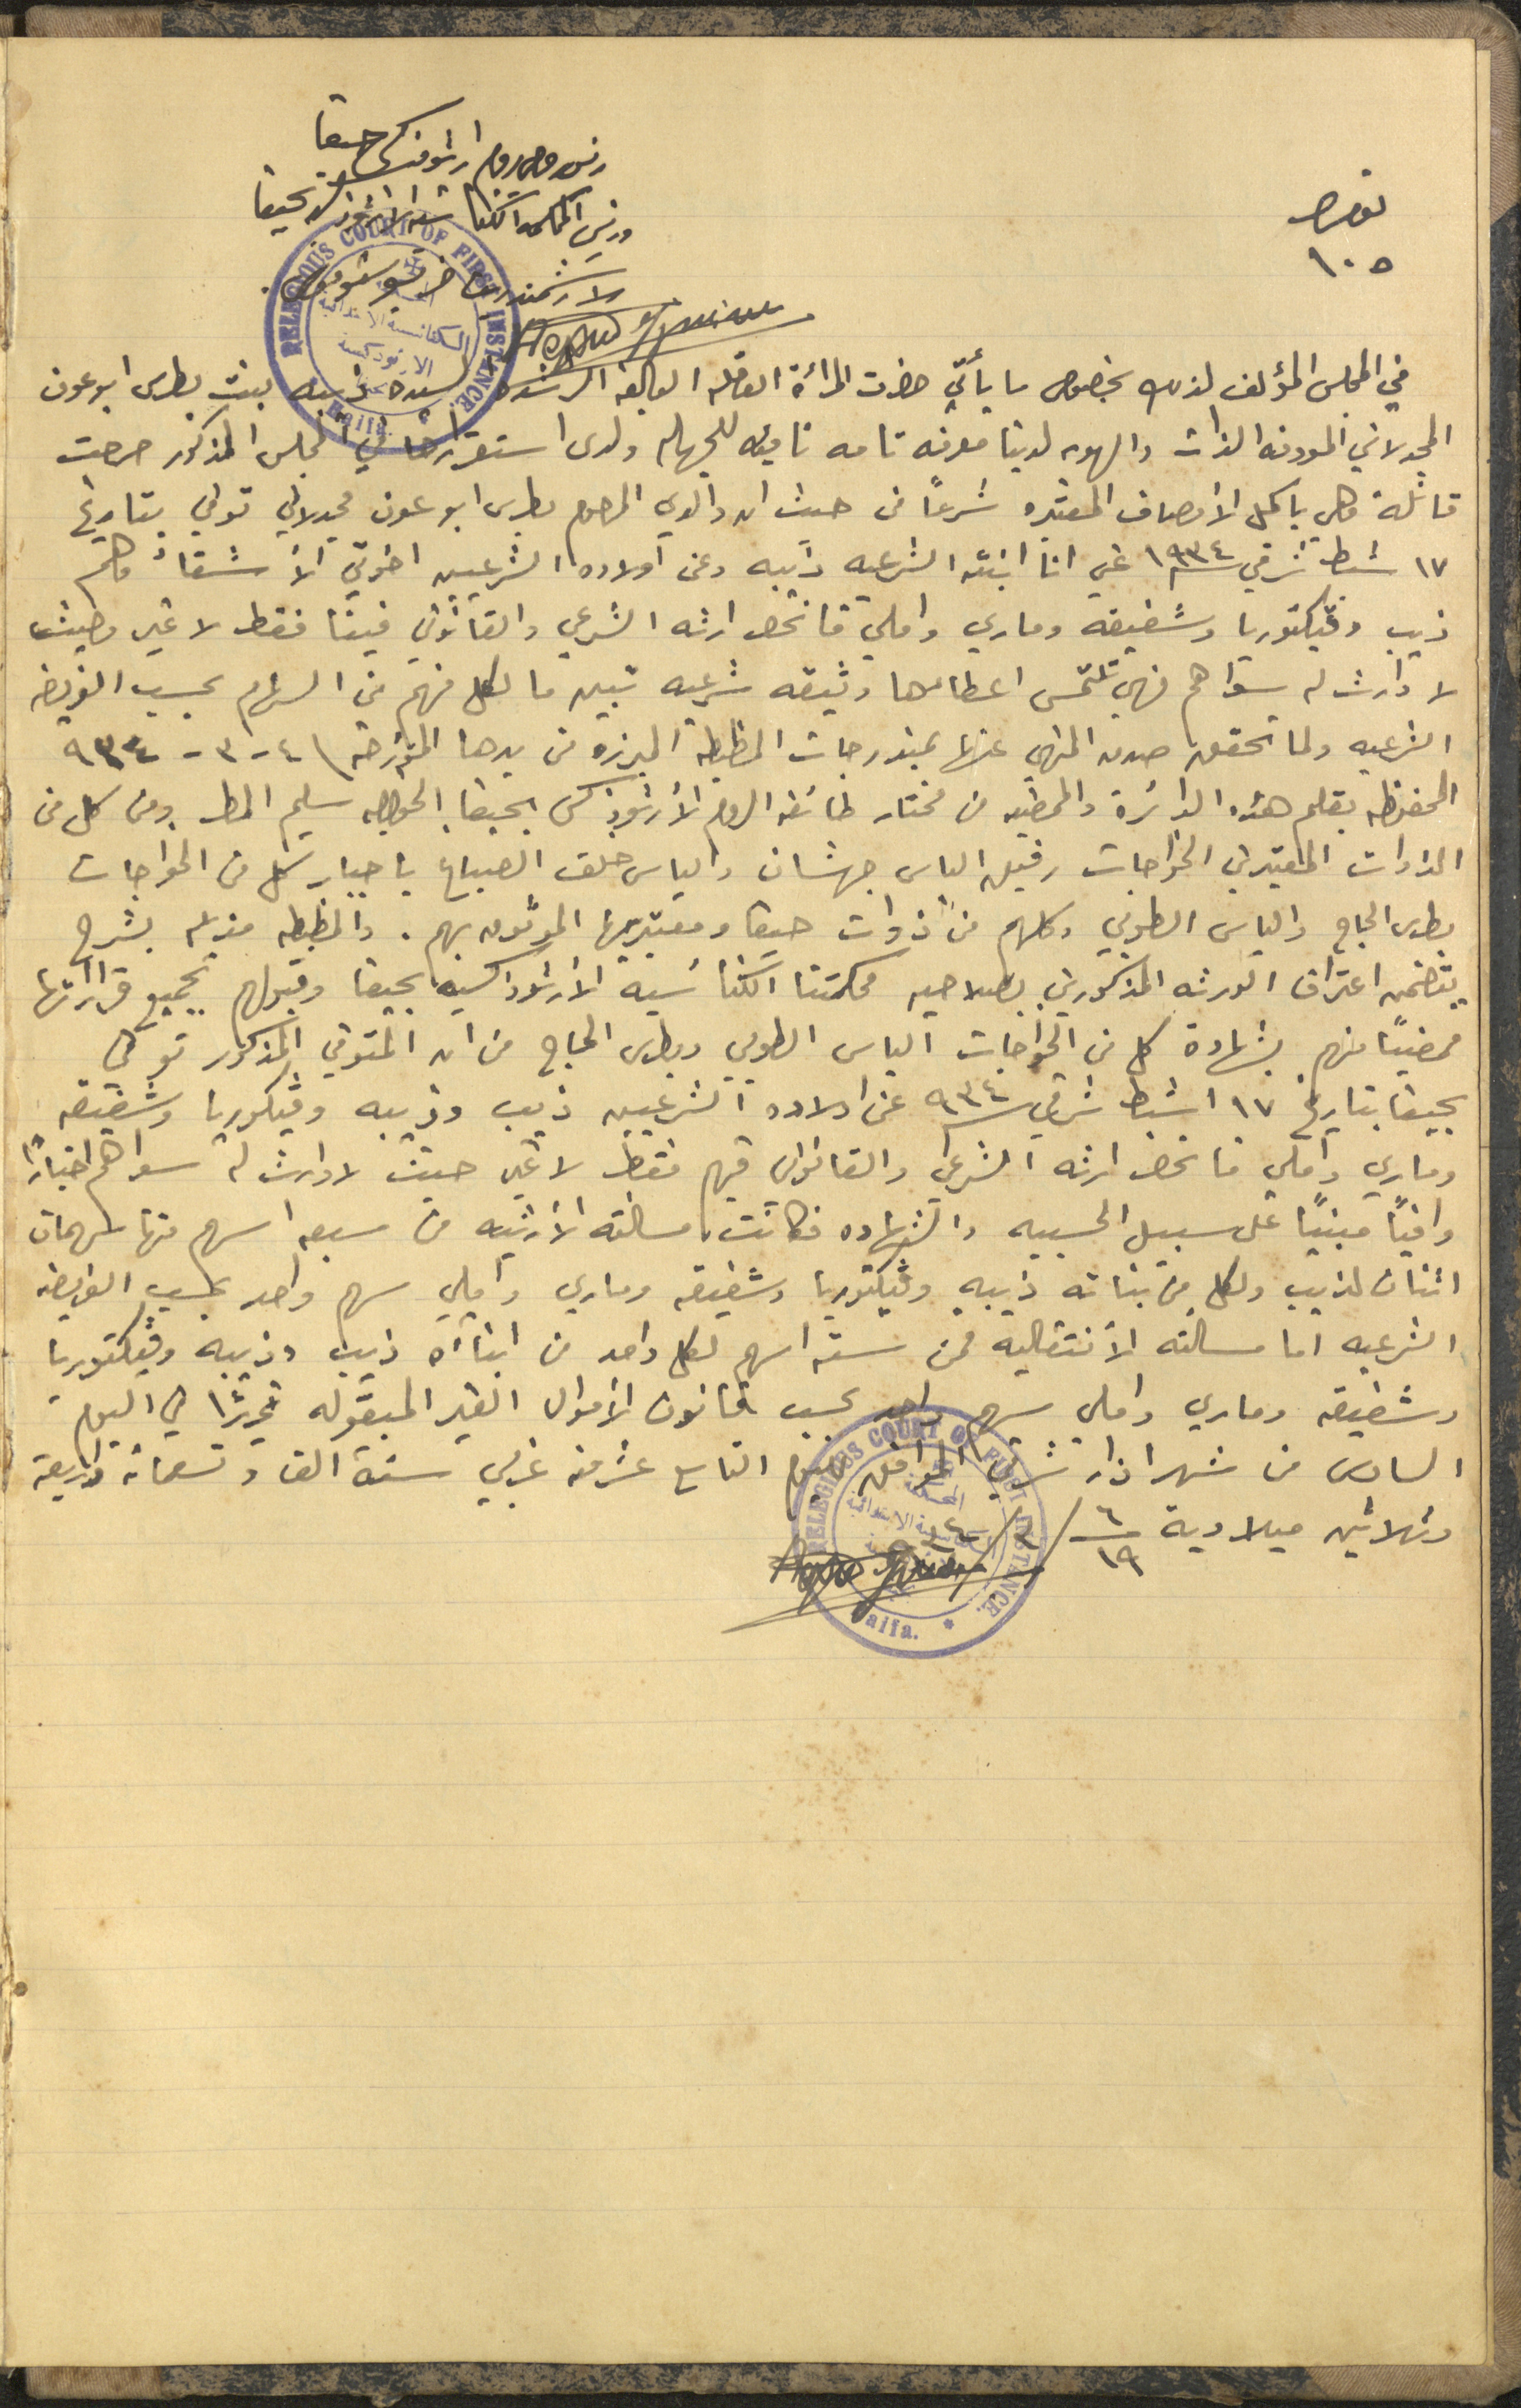 رئيس روم ارثوذكس حيفا
ورئيس المحكمة الكنائسية الارثوذكسية بحيفا
نمرو
١٠٥
الارشمندريت
RELEGIOUS COURT OF FIRST INSTANCE.
الكنائسية الابتدائية
الارثوذكسية
Haifa.
في المجلس المؤلف لذلك بخصوص ما يأتي حضرت المرأة العاقله البالغه الرشده السيده ذيبه بنت بطرس ابو عون
المجدلاني المعروفة الذات والهويه لدينا معرفه تامه نافيه للجهاله ولدى استقرارها في المجلس المذكور صرحت
قائلة وهي باكمل الأوصاف المعتبره شرعاً من حيث ان والدي المرحوم بطرس ابو عون مجدلاني توفي بتاريخ
١٧ شباط شرقي سنة ١٩٣٤ عني انا ابنته الشرعيه ذيبه وعن اولاده الشرعيين اخوتي الأشقاء وهم
ذيب وڤيكتوريا وشفيقه وماري واملي فانحصر ارثه الشرعي والقانوني فينا فقط لا غير وحيث
لا وارث له سواهم فهي تلتمس اعطاءها وثيقه شرعيه تبين ما لكل منهم من السهام بحسب الفريضه
الشرعيه ولما تحقق صدق المنهى عنها بمندرجات المظبطة المبرزه من يدها المؤرخة ١٤-٣-٩٣٤
المحفوظه بقلم هذه الدائرة والممضيه من مختار طائفة الروم الأرثوذكس بحيفا الخواجه سليم المطر ومن كل من
الذوات المعتبرين الخواجات رفيق الياس جهشان والياس خلف الصباغ باخبار كل من الخواجات
بطرس الحاج والياس الطوبي وكلهم من ذوات حيفا ومعتبريها الموثوق بهم . والمظبطه مذيله بشرح
يتضمن اعتراف الورثه المذكورين بصلاحيه محكمتنا الكنائسيه الأرثوذاكسيه بحيفا وقبولهم بجميع قراراتها
ممضيًا منهم بشهادة كل من الخواجات الياس الطوبي وبطرس الحاج من ان المتوفي المذكور توفي
بحيفا بتاريخ ١٧ اشباط شرقي سنة ٩٣٤ عن اولاده الشرعيين ذيب وذيبه وڤيكوريا وشفيقه
وماري واملي فانحصر ارثه الشرعي والقانوني فيهم فقط لا غير حيث لا وارث له سواهم اخبارًا
وافيًا مبنيًا على سبيل الحسبيه والشهاده فكانت مسالته الأرثيه من سبعه اسهم منها سهمان
اثنان لذيب ولكل من بناته ذيبه وڤيكتوريا وشفيقه وماري واملي سهم واحد بحسب الفريضه
الشرعيه اما مسالته الأنتقاليه فمن سته اسهم لكل واحد من ابنآئه ذيب وذيبه وڤيكتوريا
وشفيقه وماري واملي سهم واحد بحسب قانون الأموال الغير المنقوله تحريرًا في اليوم
السادس من شهر اذار شرقي الموافق لليوم التاسع عشر منه غربي سنة الف وتسعمائة واربعة
وثلاثين ميلادية ٦/١٩ /٣/ ٩٣٤
RELEGIOUS COURT OF FIRST INSTANCE.
Haifa.